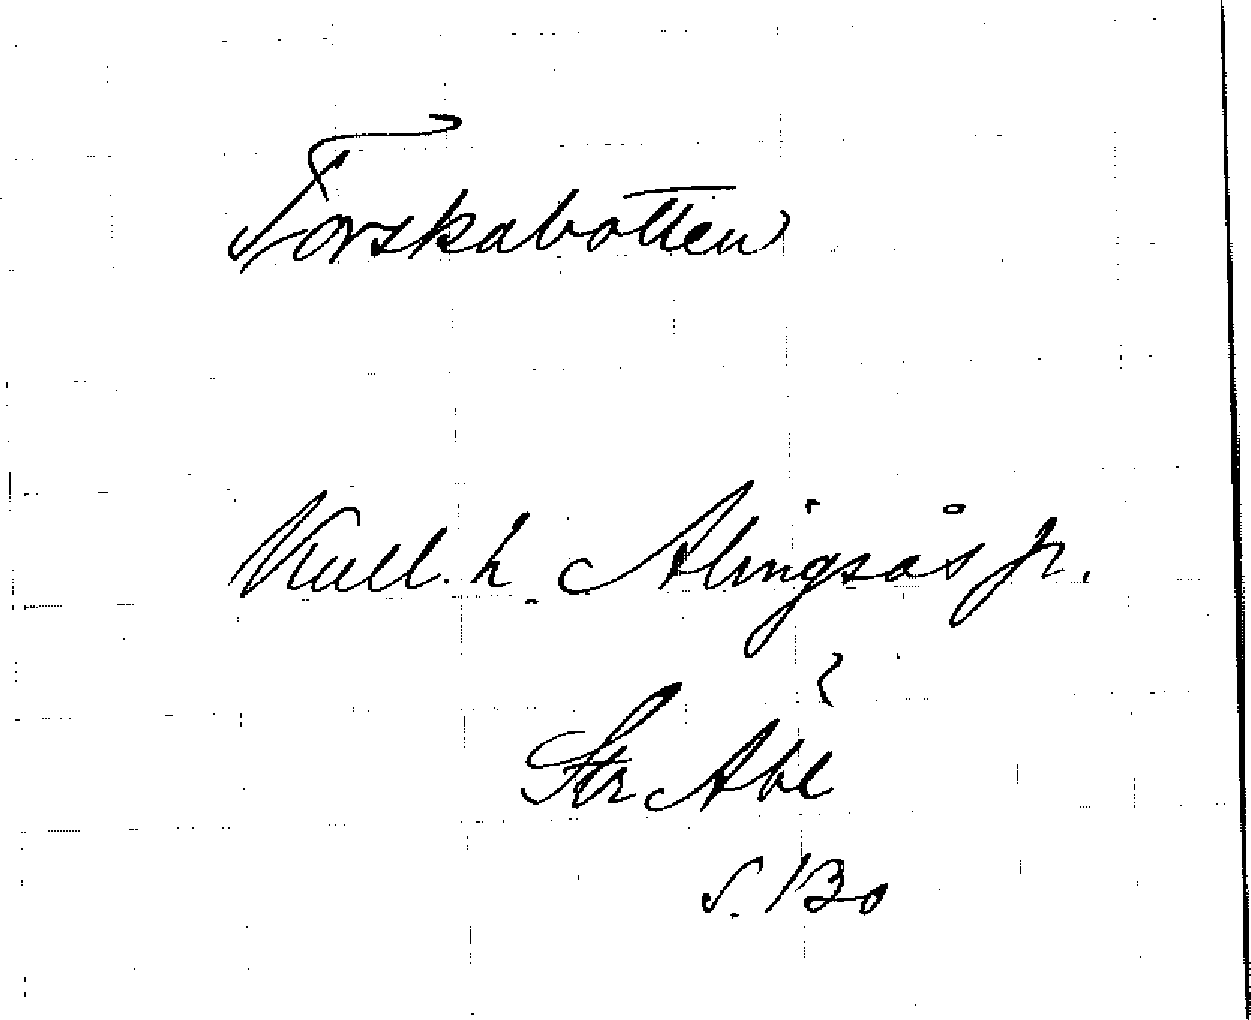 Torskabotten
Kull. h. Alingsås jr.
Str Abl
S. 130